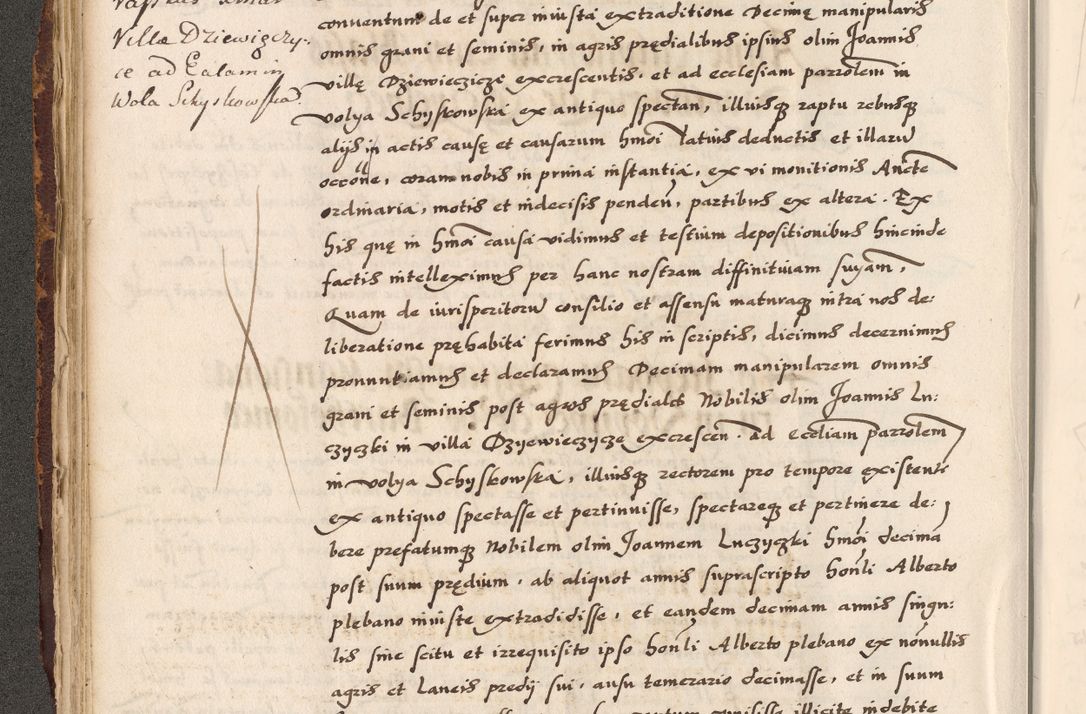 Villæ Dziewięczy-
ce ad Ealam in
Wola Schyskowska
conventum de et super iniusta extraditione Decimę manipularis
omnis grani et seminis, in agris prędialibus ipsius olim Joannis
villę Dziewieczicze excrescentis, et ad ecclesiam parrolem in
volya Schyskowska ex antiquo spectan, illiusq raptu rebusq
alijs in actis causę et causarum hmoi latius deductis et illaru
occone, coram nobis in prima instantia, ex vi monitionis Ancte
ordinaria, motis et indecisis penden, partibus ex altera. Ex
his quę in hmoi causa vidimus et testium depositionibus hincinde
factis intelleximus per hanc nostram diffinitivam snyam,
Quam de iurisperitoru consilio et assensu maturaq intra nos de:
liberatione pręhabita ferimus his in scriptis, dicimus decernimus
pronuntiamus et declaramus Decimam manipularem omnis
grani et seminis post agros prędiales Nobilis olim Joannis Lu:
czyczki in villa Dzyewieczycze excrescen. ad eccliam parrolem
in volya Schyskowska, illiusq rectorem pro tempore existente
ex antiquo spectasse et pertinuisse, spectareq et pertinere de:
bere prefatumq Nobilem olim Joannem Luczyczki hmoi decima
post suum prędium, ab aliquot annis suprascripto honli Alberto
plebano iniuste extradidisse, et eandem decimam annis singu:
lis sine scitu et irrequisito ipso honli Alberto plebano ex nonnullis
agris et laneis predij sui, ausu temerario decimasse, et in suum
illicite indebite